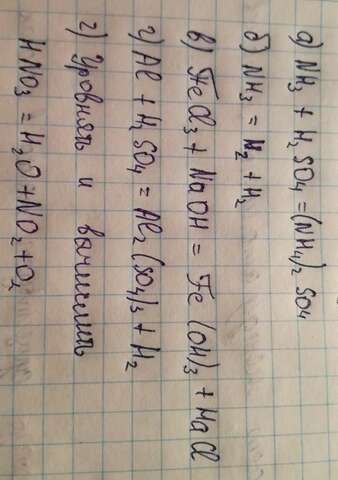 а) NH₃ + H₂SO₄ = (NH₄)₂SO₄
б) NH₃ = N₂ + H₂
в) FeCl₃ + NaOH = Fe(OH)₃ + NaCl
г) Al + H₂SO₄ = Al₂(SO₄)₃ + H₂
2) Уровнять и вычислить
HNO₃ = H₂O + NO₂ + O₂